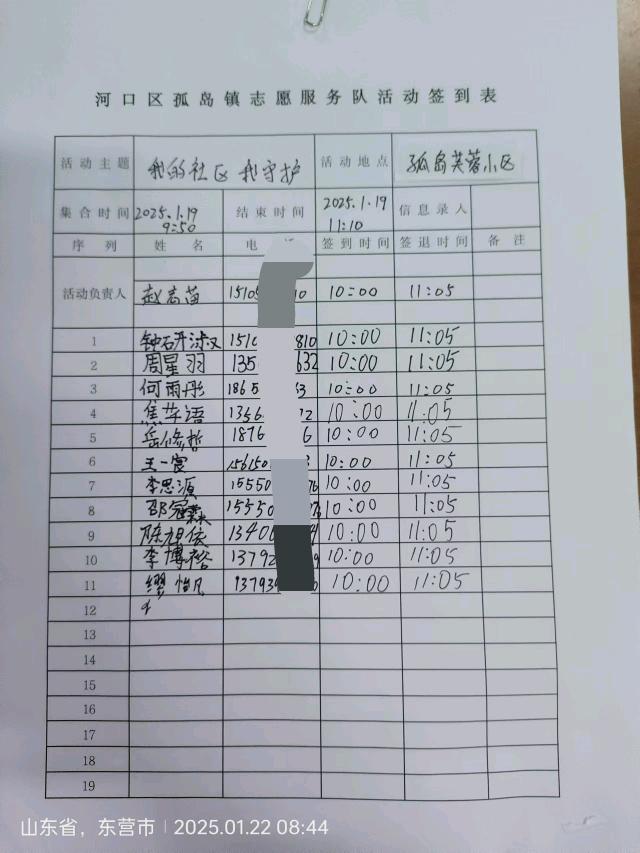 河口区孤岛镇志愿服务队活动签到表
活动主题 我的社区 我守护 活动地点 孤岛芙蓉小区
集合时间 2025.1.19 9:50 结束时间 2025.1.19 11:10 信息录入
序列 姓名 电 签到时间 签退时间 备注
活动负责人 赵高苗 1510 10 10:00 11:05
1 1510 810 10:00 11:05
2 周星羽 135 632 10:00 11:05
3 何雨彤 1865 3 10:00 11:05
4 焦华语 1356 2 10:00 11:05
5 岳修哲 1876 6 10:00 11:05
6 王一宸 156150 10:00 11:05
7 李思源 15550 76 10:00 11:05
8 邵冠霖 15550 10:00 11:05
9 1340 10:00 11:05
10 李博裕 1379 10:00 11:05
11 缪怡凡 13793 10:00 11:05
12
13
14
15
16
17
18
19
山东省，东营市 | 2025.01.22 08:44